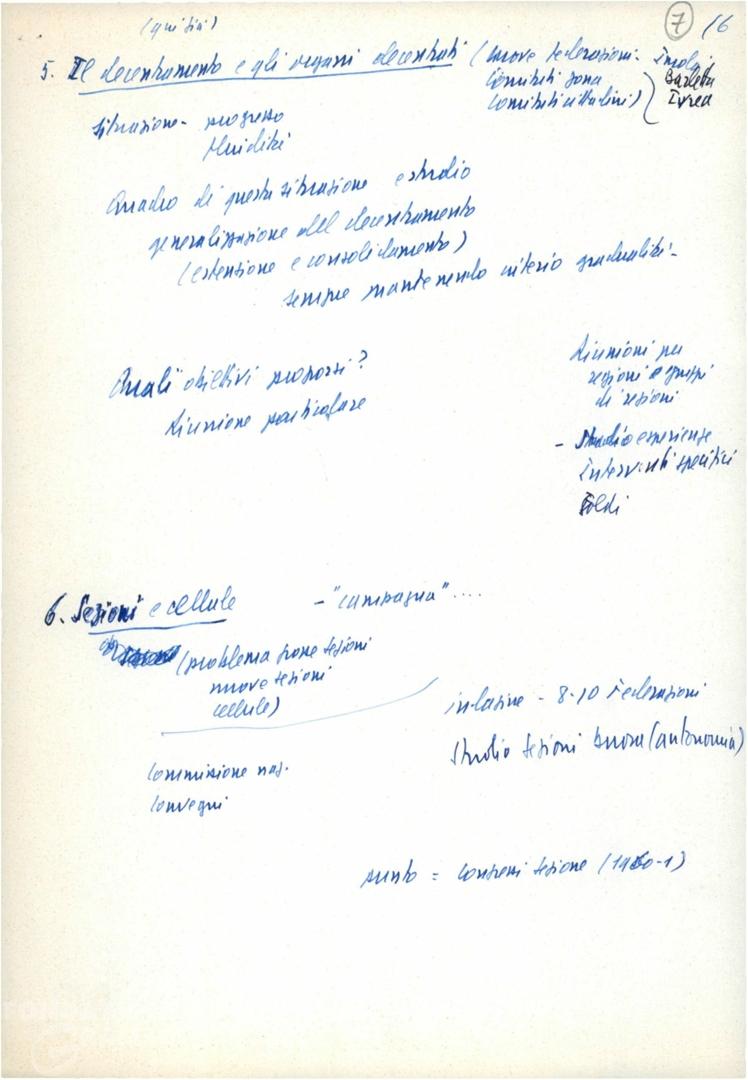 7 16
5. Il decentramento e gli organi decentrati (nuove federazioni - Imola
Comitati zona Barletta
Comitati cittadini) Ivrea
situazione - progresso
fluidità
Quadro di questa situazione e studio
generalizzazione del decentramento
(estensione e consolidamento)
sempre mantenendo criterio gradualità -
Quali obiettivi proporsi?
Riunione particolare
Riunioni per
regioni e gruppi
di regioni
- Studio esperienze
Interventi specifici
Soldi
6. Sezioni e cellule - "campagna" ....
(problema grosse sezioni
nuove sezioni
cellule)
- 8-10 Federazioni
Studio sezioni (autonomia)
Commissione naz.
Convegni
punto = Congressi sezione (1960-1)